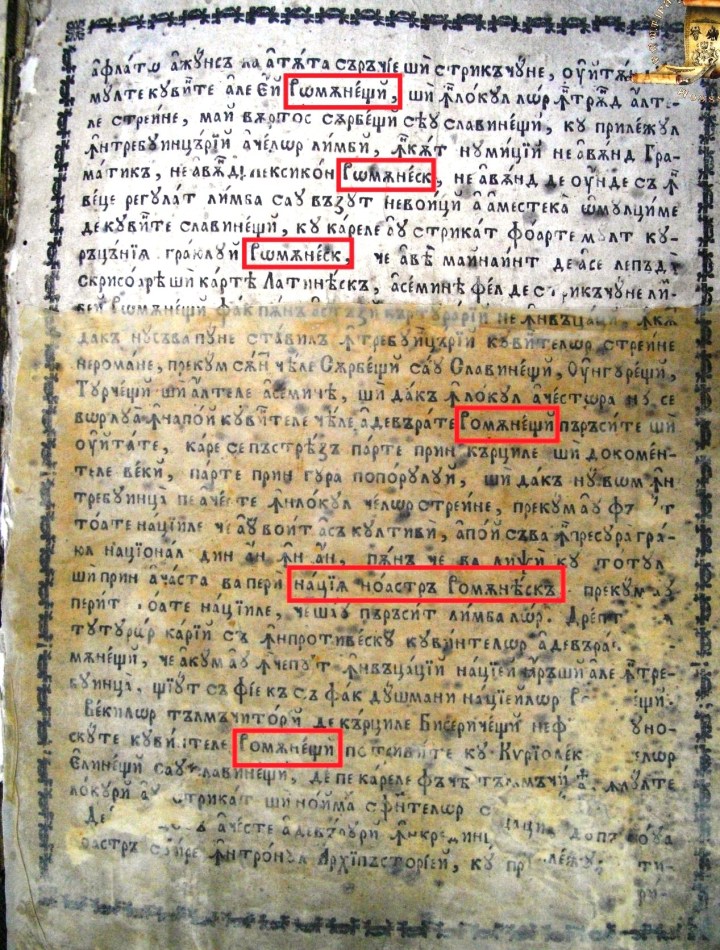 а҆флатѡ а҆жꙋнсъ ла а҆тѫта съръчїе шѝ стрикъчꙋне, ᲂу҆йтѫ
мꙋлте кꙋви́те а҆ле є҆́й Рѡмѫне́щй, шѝ ꙟ҆локꙋл лѡр ꙟ҆трѫд а҆лте-
ле стреи́не, май вѫртос сѫрбе́щй сѣꙋ славине́щй, кꙋ прилѣжꙋл
ꙟ҆нтребꙋинцърїй а҆че́лѡр ли́мбй, ꙟ҆кѫт нꙋмицїй не а҆вѫнд Гра-
ма́тикъ, не а҆вѫд лексико́н Рѡмѫне́ск, не а҆вѫнд де ᲂу҆нде съ ꙟ҆
ве́це регꙋлат ли́мба саꙋ възꙋт невои́цй а҆ аместека̀ ѡ҆мꙋлци́ме
де кꙋви́те славине́щй, кꙋ ка́реле аꙋ стрика́т фоа́рте мꙋлт кꙋ-
ръцъні́ѧ гра́юлꙋй Рѡмѫне́ск, че а҆вѣ̀ майнаи́нт де асе лепъдà
скрисоа́рѣ шѝ ка́ртѣ Лати́нѣскъ, а҆се́минѣ фе́л де стрикъчꙋне ли́м-
бей Рѡмѫне́щй фак пѫнъ астъзй кърт꙼ꙋрарїй не ꙟ҆нвъца́цй, ꙟ҆кѫ
дакъ нꙋсъва пꙋне ста́вилъ ꙟ҆требꙋи́нцърїй кꙋви́телѡр стреи́не
нерома́не, прекꙋм сѫ́нт че́ле Сѫрбе́щй саꙋ Славине́щй, Оу҆нгꙋре́щй,
Тꙋрче́щй шѝ а́лтеле а҆се́миче, шѝ да́къ ꙟ҆локꙋл а҆че́стѡра нꙋ се
вѡрлꙋа̀ ꙟ҆напо́й кꙋви́теле че́ле а҆девъра́те Ромѫне́щй пъръси́те шѝ
ᲂу҆йта́те, ка́ре се пъстрѣзъ па́рте прин кърциле шѝ докоме́н-
теле ве́кй, па́рте прин гꙋра попо́рꙋлꙋй, шѝ да́къ нꙋ вѡм ꙟ҆н
требꙋинца̀ пе аче́сте ꙟ҆нло́кꙋл че́лѡр стреи́не, прекꙋм аꙋ фъ т
тоа́те на́цїиле че аꙋ вои́т а́съ кꙋлтивѝ, а҆по́й съва ꙟ҆пресꙋра гра́-
юл націона́л дин ан ꙟ҆н ан, пѫнъ че ва кꙋ то́тꙋл
шѝ прин ача́ста ва перѝ на́цїѧ ноа́стръ Ромѫнѣ́скъ прекꙋм аꙋ
пери́т оа́те на́цїиле, че шаꙋ пъръси́т ли́мба лѡр. Дре́пт
тꙋтꙋрѡр ка́рїй съ ꙟ҆нпротиве́ск кꙋви́нтелѡр а҆девъра́
мѫне́щй, че акꙋм аꙋ ꙟ҆чепꙋт ꙟ҆нвъца́цїй на́цїей но́ръший але ꙟ҆тре-
бꙋинца̀, щїꙋт съ фїе къ съ фак дꙋшма́ни на́цїейлѡр
Ве́килѡр тълмъчито́рй де кърциле Бисериче́щй неф ꙋно-
скꙋте кꙋви́нтеле Ромѫне́щй потриви́те кꙋ Кѵрїоле́к елѡр
Є҆лине́щй саꙋ славине́щй, де пе ка́реле фъчѣ̀ тълмъчи ꙟ҆ мꙋлте
ло́кꙋрй аꙋ стрика́т шѝ но́йма сфи́нтелѡр с
Де а҆че́сте а҆девърꙋрй ꙟ҆нкрединц
оа́стръ сꙋи́ре ꙟ҆нтро́нꙋл А҆рхїпъсторїей, кꙋ пр лѣжꙋ ти-